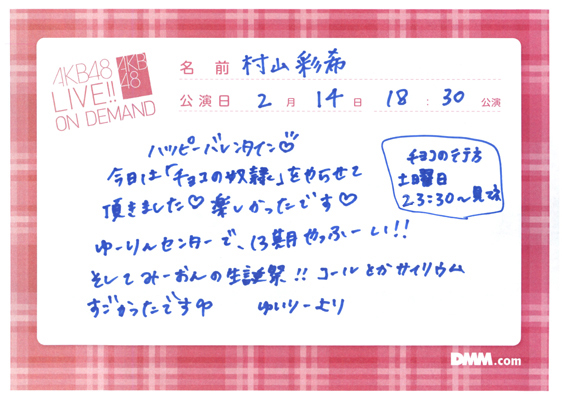 AKB48
LIVE!!
ON DEMAND
AKB
48
名 前 村山彩希
公演日 2月 14日 18:30 公演
ハッピーバレンタイン♡
今日は「チョコの奴隷」をやらせて
頂きました♡楽しかったです♡
チョコの行方
土曜日
23:30〜見てね
ゆーりんセンターで、13期やっふーい!!
そしてみーおんの生誕祭!! コールとかサイリウム
すごかったです
ゆいりーより
DMM.com